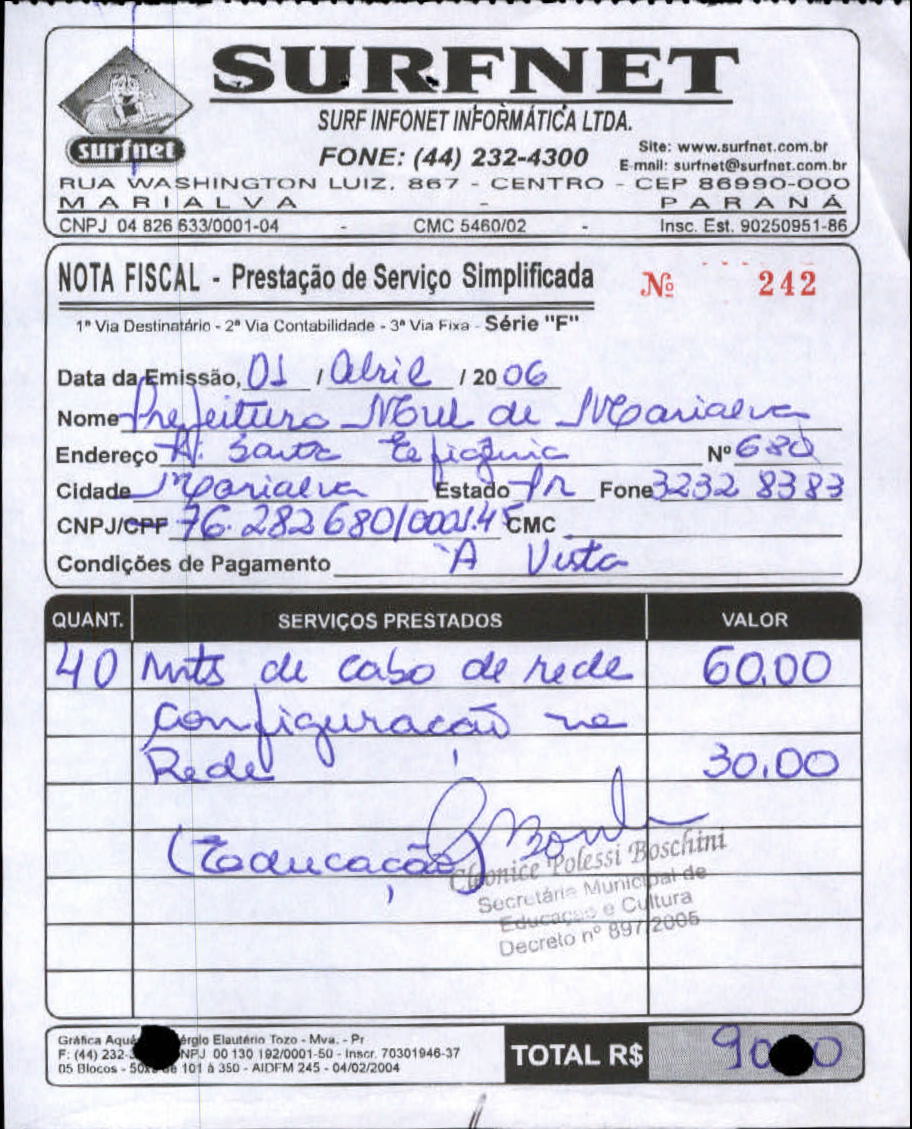 SURFNET
surfnet
SURF INFONET INFORMÁTICA LTDA.
FONE: (44) 232-4300
Site: www.surfnet.com.br
E-mail: surfnet@surfnet.com.br
RUA WASHINGTON LUIZ, 867 - CENTRO - CEP 86990-000
MARIALVA - PARANÁ
CNPJ 04 826 633/0001-04 - CMC 5460/02 - Insc. Est. 90250951-86
NOTA FISCAL - Prestação de Serviço Simplificada Nº 242
1ª Via Destinatário - 2ª Via Contabilidade - 3ª Via Fixa - Série "F"
Data da Emissão, 01 / Abril / 20 06
Nome Prefeitura Mul de Marialva
Endereço R. Santa Efigênia Nº 680
Cidade Marialva Estado Pr Fone 3232 8383
CNPJ/CPF 76.282680/0001.45 CMC
Condições de Pagamento À Vista
QUANT. SERVIÇOS PRESTADOS VALOR
40 mts de cabo de rede 60,00
configuração na
Rede 30,00
(Educação)
Cleonice Polessi Boschini
Secretária Municipal de
Educação e Cultura
Decreto nº 897/2005
Gráfica Elautério Tozo - Mva. - Pr
F: (44) 00 130 192/0001-50 - Inscr. 70301946-37
05 Blocos - de 101 à 350 - AIDFM 245 - 04/02/2004
TOTAL R$ 90